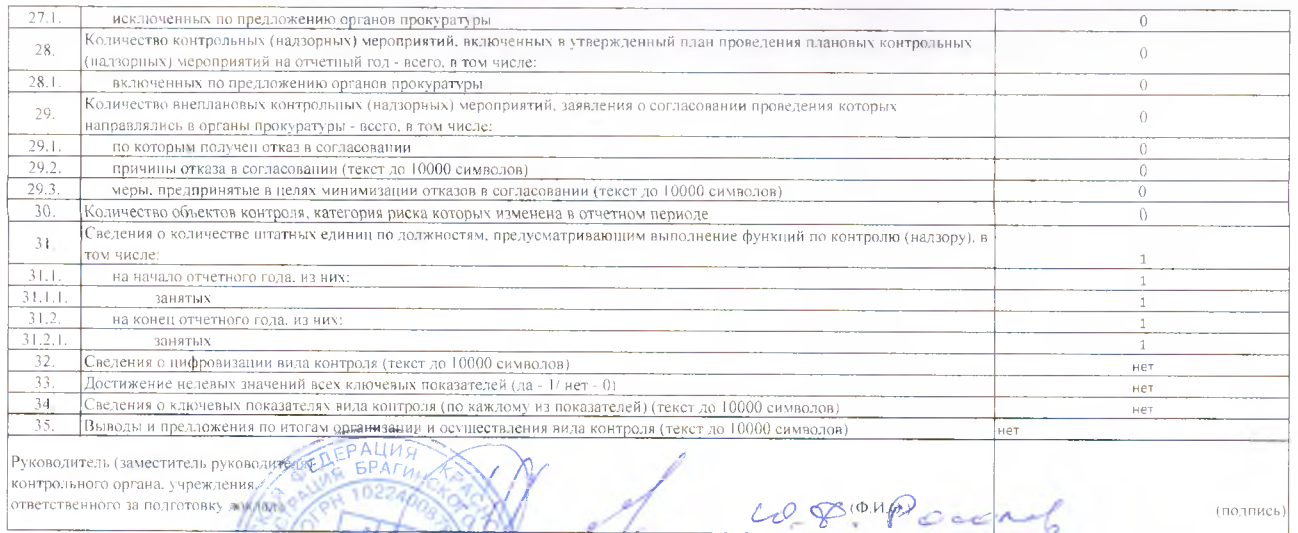 27.1. исключенных по предложению органов прокуратуры 0
28. Количество контрольных (надзорных) мероприятий, включенных в утвержденный план проведения плановых контрольных
(надзорных) мероприятий на отчетный год - всего, в том числе: 0
28.1. включенных по предложению органов прокуратуры 0
29. Количество внеплановых контрольных (надзорных) мероприятий, заявления о согласовании проведения которых
направлялись в органы прокуратуры - всего, в том числе: 0
29.1. по которым получен отказ в согласовании 0
29.2. причины отказа в согласовании (текст до 10000 символов) 0
29.3. меры, предпринятые в целях минимизации отказов в согласовании (текст до 10000 символов) 0
30. Количество объектов контроля, категория риска которых изменена в отчетном периоде 0
31. Сведения о количестве штатных единиц по должностям, предусматривающим выполнение функций по контролю (надзору), в
том числе: 1
31.1. на начало отчетного года, из них: 1
31.1.1. занятых 1
31.2. на конец отчетного года, из них: 1
31.2.1. занятых 1
32. Сведения о цифровизации вида контроля (текст до 10000 символов) нет
33. Достижение целевых значений всех ключевых показателей (да - 1/ нет - 0) нет
34 Сведения о ключевых показателях вида контроля (по каждому из показателей) (текст до 10000 символов) нет
35. Выводы и предложения по итогам организации и осуществления вида контроля (текст до 10000 символов) нет
Руководитель (заместитель руководителя)
контрольного органа, учреждения,
ответственного за подготовку доклада (Ф.И.О.) (подпись)
ФЕДЕРАЦИЯ КРАС
БРАГИНСКОГО
ОГРН 10224008